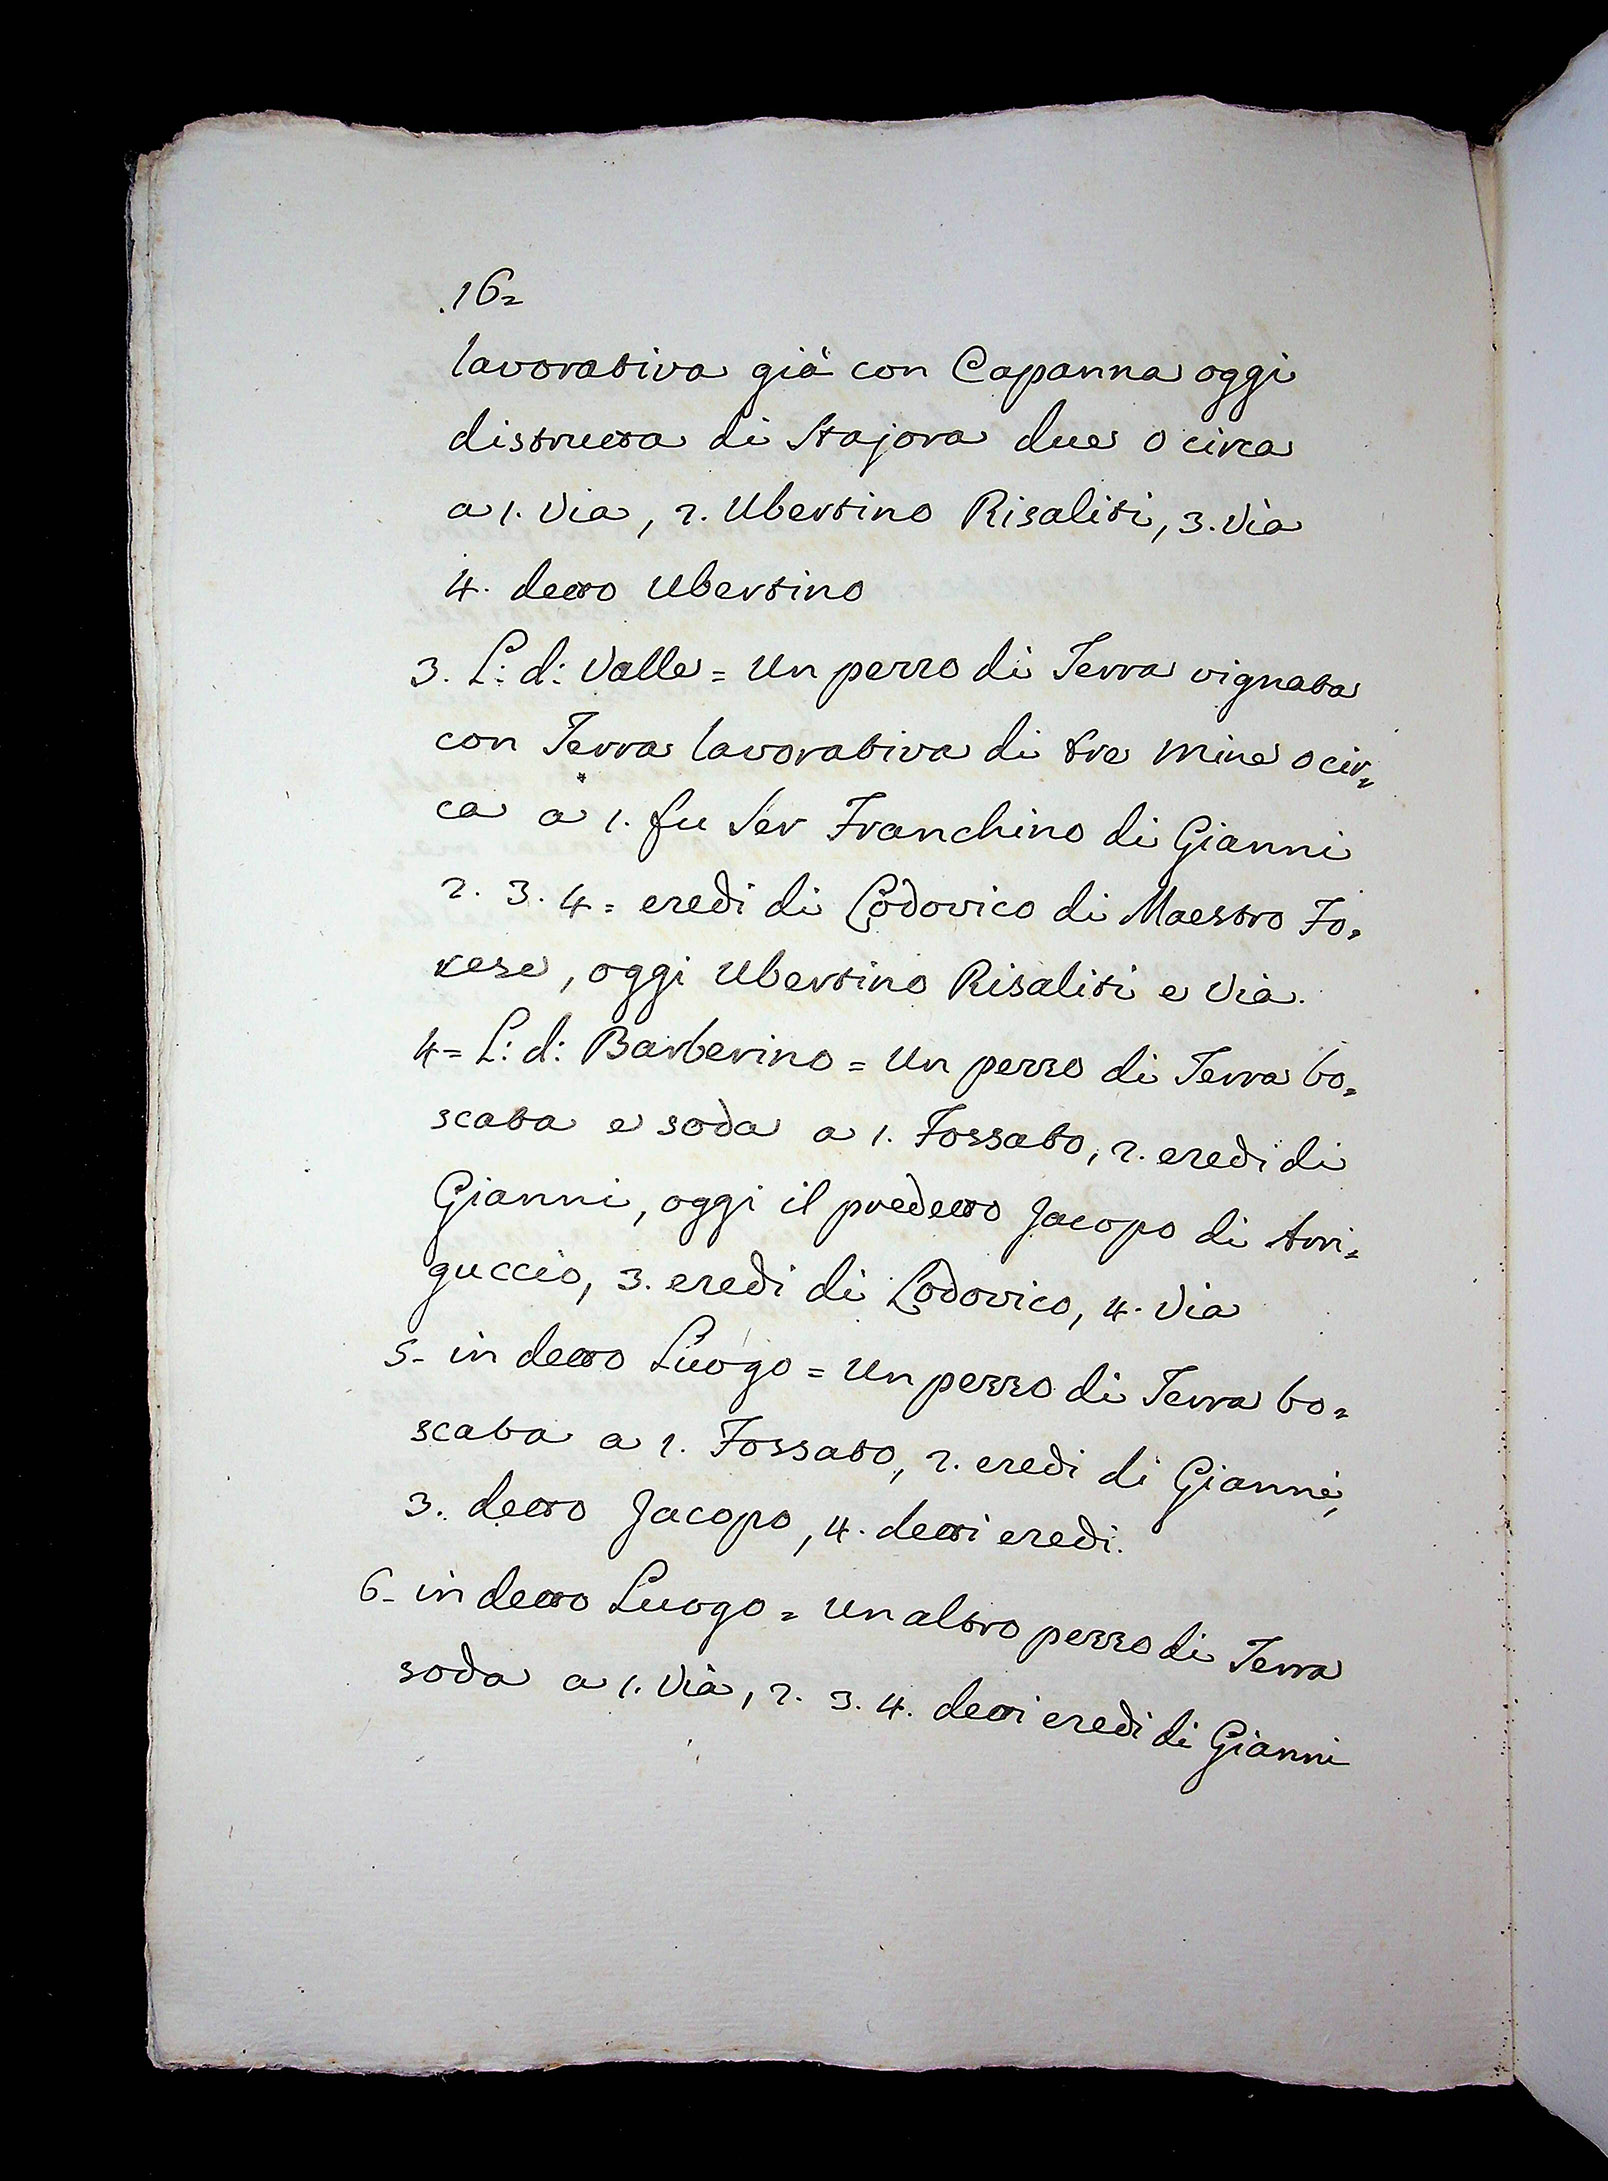 16=
lavorativa già con Capanna oggi
distrutta di Stajora due o circa
a 1. Via, 2. Ubertino Risaliti, 3. Via
4. detto Ubertino
3. L: d: Valle = Un pezzo di Terra vignata
con Terra lavorativa di tre mine o cir=
ca a 1. fu Ser Franchino di Gianni
2. 3. 4 = eredi di Lodovico di Maestro Fo=
rese, oggi Ubertino Risaliti e Via.
4 = L: d: Barberino = Un pezzo di Terra bo=
scata e soda a 1. Fossato, 2. eredi di
Gianni, oggi il predetto Jacopo di Arri=
guccio, 3. eredi di Lodovico, 4. Via
5- in detto Luogo = Un pezzo di Terra bo=
scata a 1. Fossato, 2. eredi di Gianni,
3. detto Jacopo, 4. detti eredi.
6- in detto Luogo = Un altro pezzo di Terra
soda a 1. Via, 2. 3. 4. detti eredi di Gianni